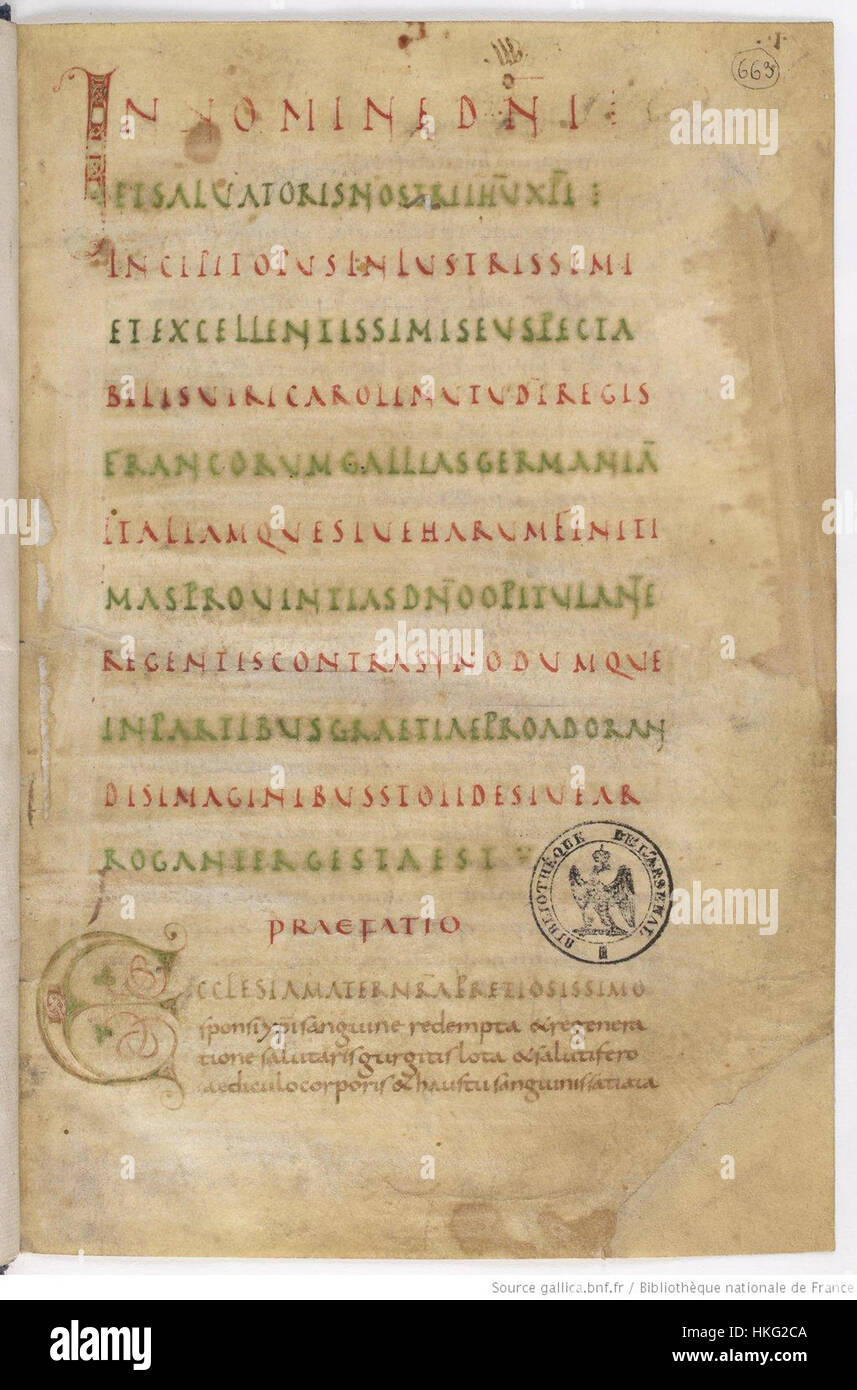 663
IN NOMINE DN̄I
ETSALUATORISNOSTRIIHŪXPĪ :
INCIPITOPUSINLUSTRISSIMI
ETEXCELLENTISSIMISEUSPECTA
BILISUIRICAROLINUTUDĪREGIS
FRANCORUMGALLIASGERMANIĀ
ITALIAMQUESIUEHARUMFINITI
MASPROUINTIASDN̄OOPITULANTE
REGENTISCONTRASYNODUMQUE
INPARTIBUSGRAETIAEPROADORAN
DISIMAGINIBUSSTOLIDESIUEAR
ROGANTERGESTAEST
PRAEFATIO
ECCLESIAMATERNR̄APRETIOSISSIMO
sponsixp̄isanguine redempta &regenera
tione salutarisgurgitislota &salutifero
aediculocorporis&haustusanguinissatiata
BIBLIOTHÈQUE DE L'ARSENAL
alamy
Source gallica.bnf.fr / Bibliothèque nationale de France
alamy
Image ID: HKG2CA
www.alamy.com